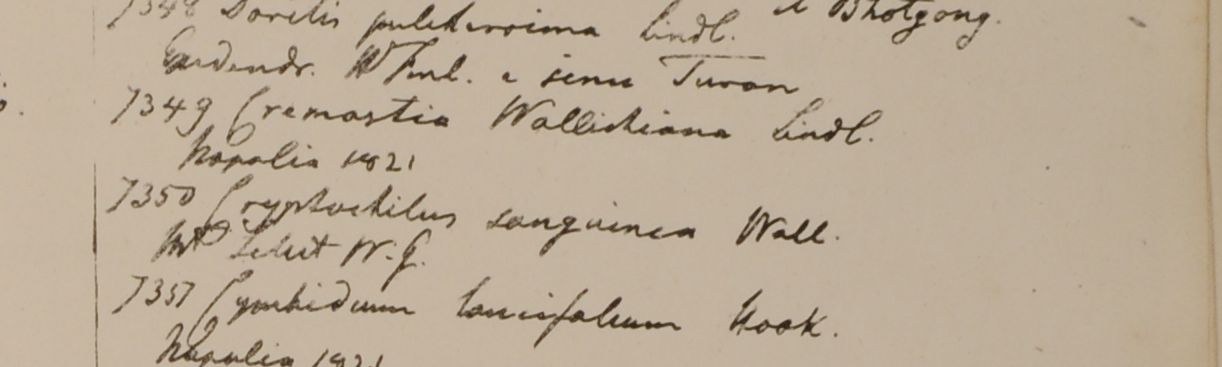 7348 Doritis pulcherrima Lindl. et Bhotgong.
Gardendr. W Finl. e sinu Turon
7349 Cremastia Wallichiana Lindl.
Napalia 1821
7350 Cryptochilus sanguinea Wall.
W. G.
7351 Cymbidium lancifolium Hook.
Napalia 1821